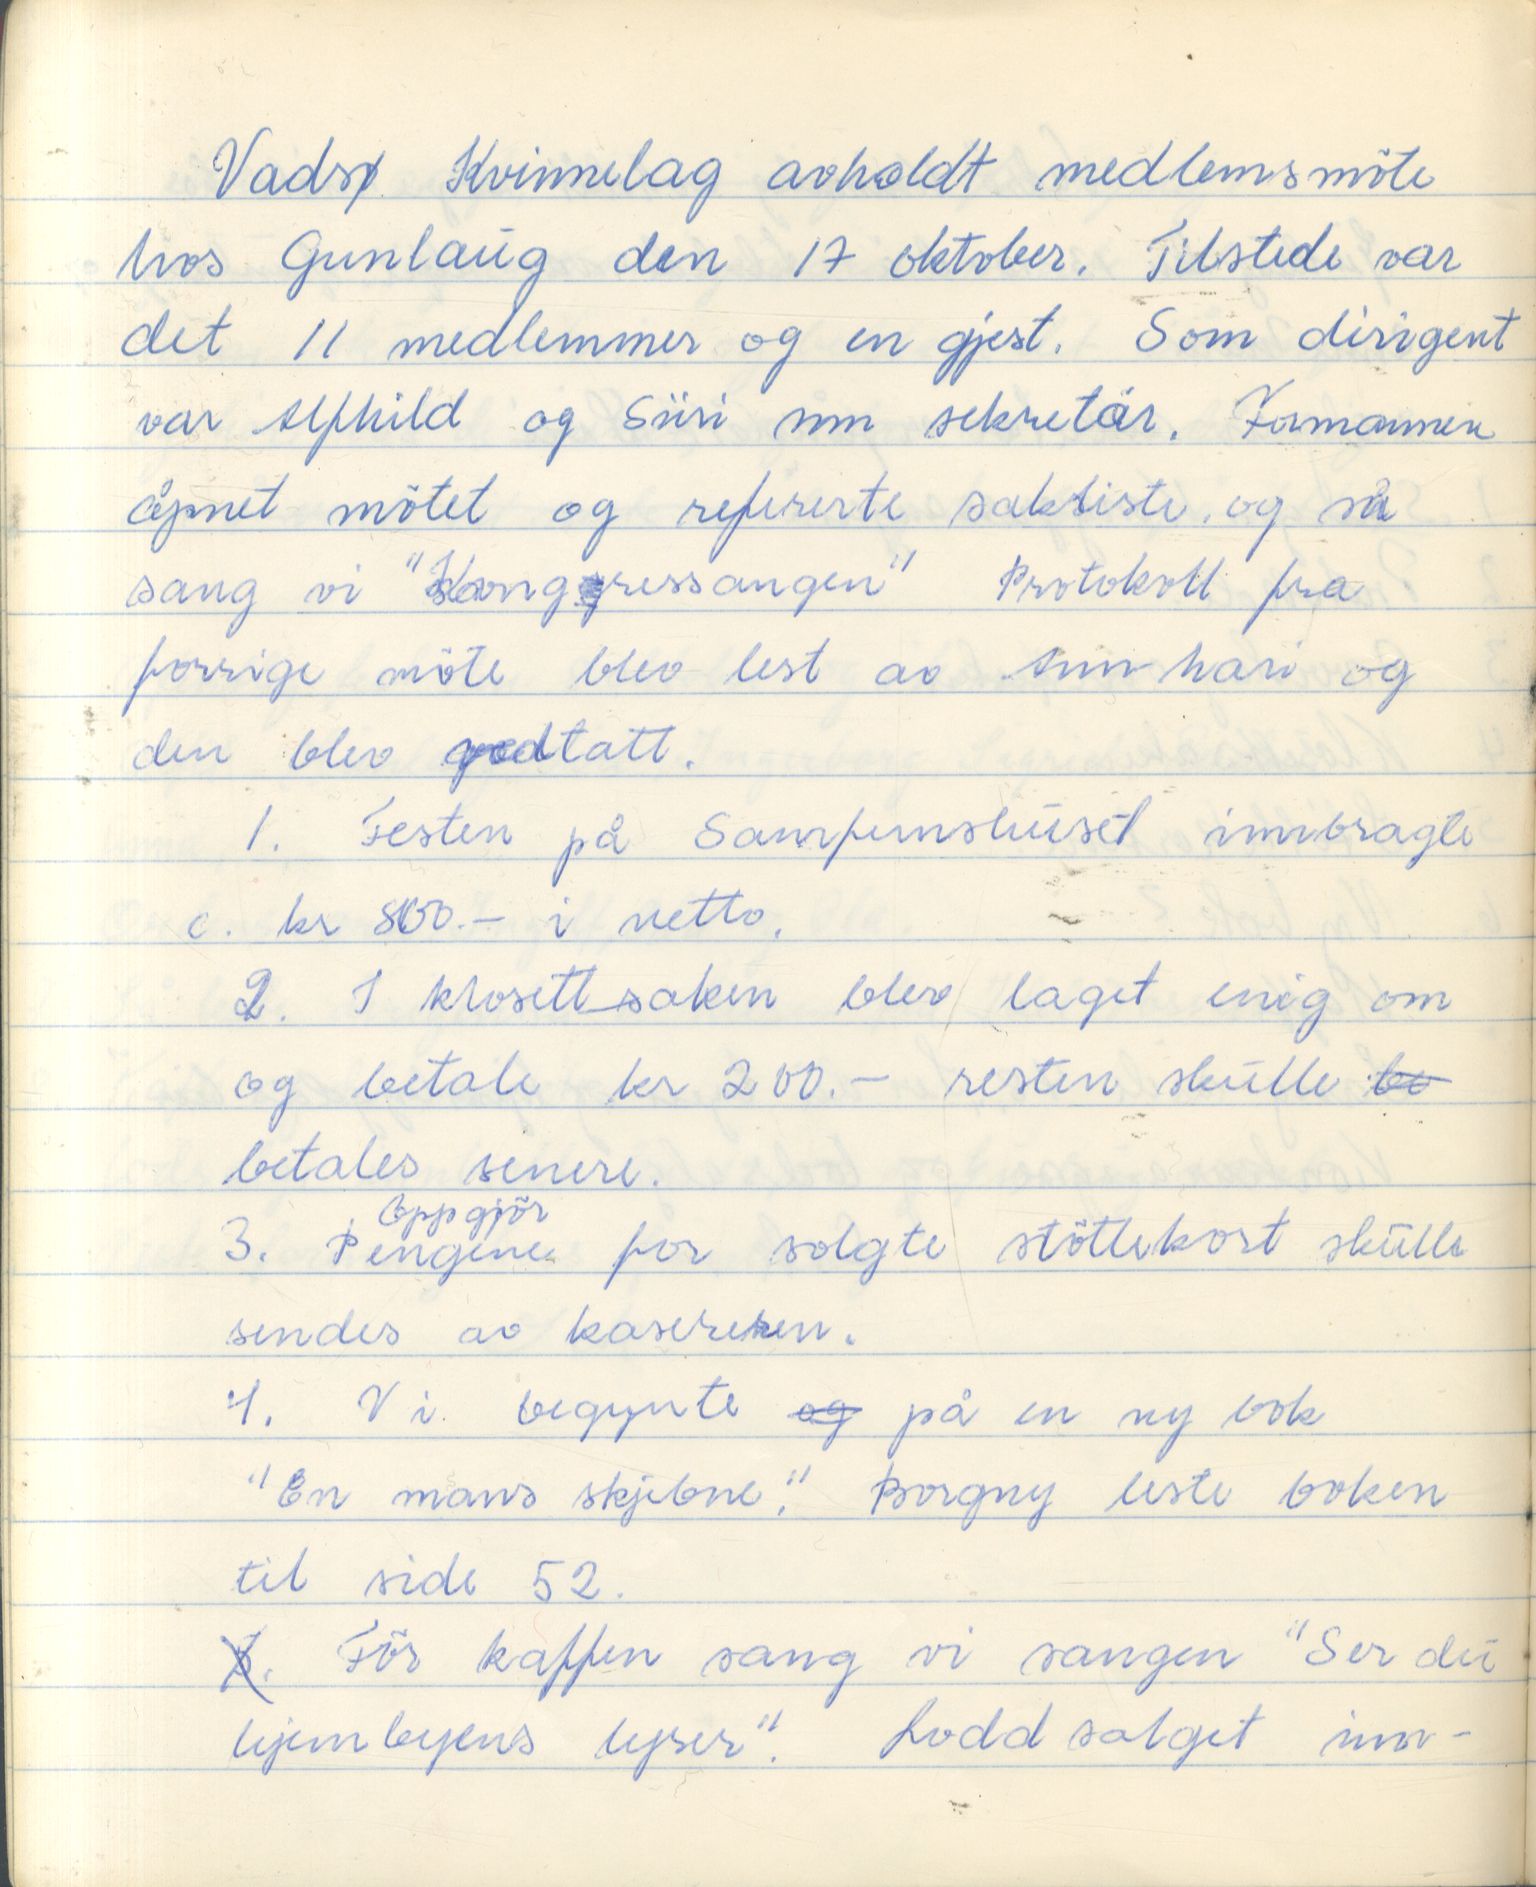 Vadsø Kvinnelag avholdt medlemsmöte
hos Gunlaug den 17 oktober. Tilstede var
det 11 medlemmer og en gjest. Som dirigent
var Alfhild og Siiri som sekretär. Formannen
åpnet mötet og refererte saksliste, og så
sang vi "Kongressangen" Protokoll fra
forrige möte blev lest av Ann-Mari og
den blev godtatt.
1. Festen på Samfunshuset innbragte
c. kr 800.- i netto.
2. I klosettsaken blev laget enig om
og betale kr 200.- resten skulle be
betales senere.
Oppgjör
3. Pengene for solgte stöttekort skulle
sendes av kassereren.
4. Vi begynte og på en ny bok
"En mans skjebne". Borgny leste boken
til side 52.
5. För kaffen sang vi sangen "Ser du
hjembyens lyser". Loddsalget inn-